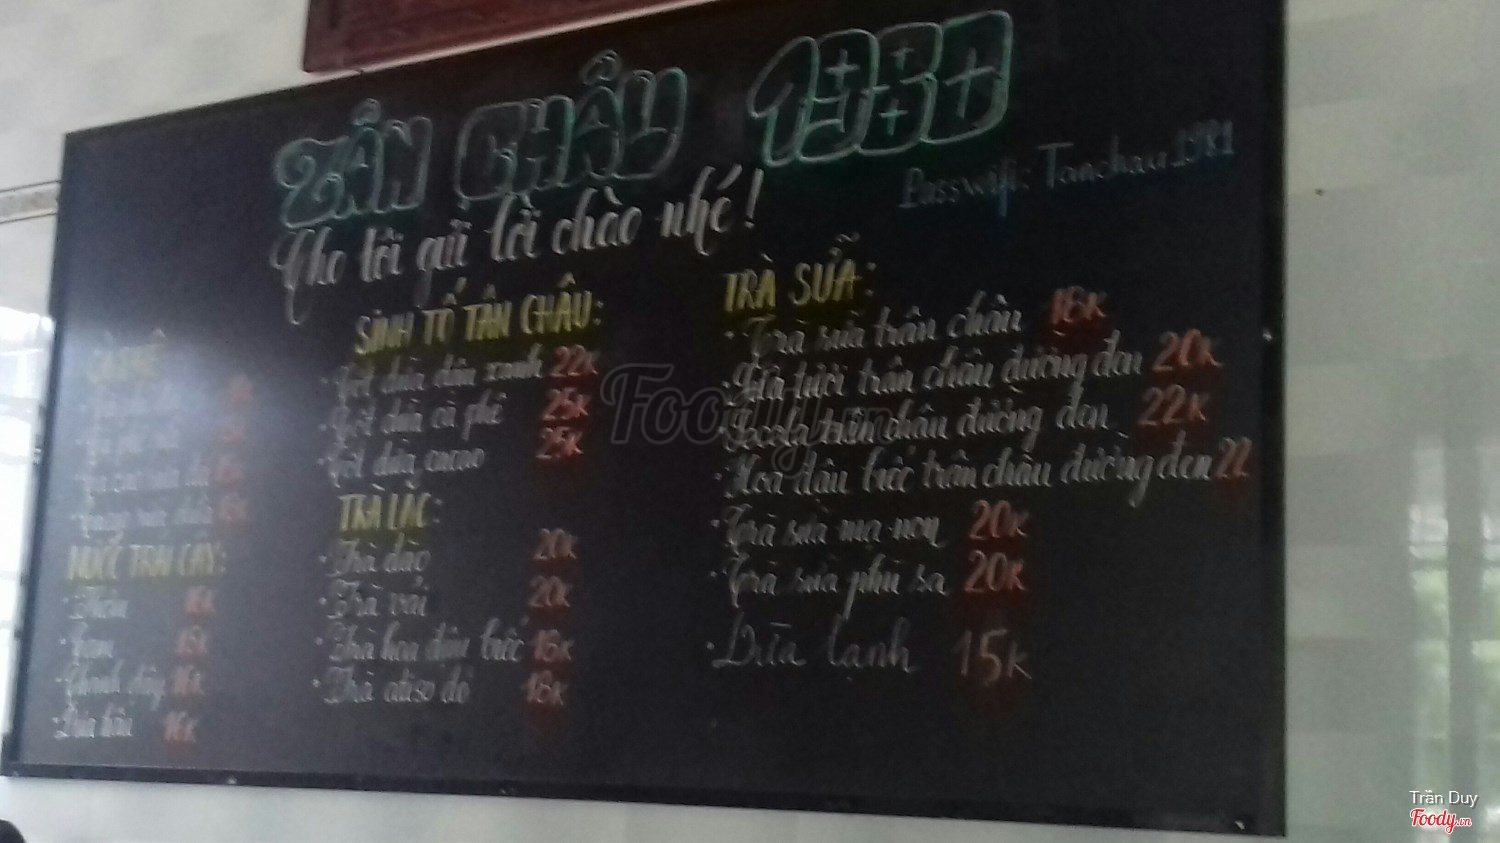 TÂN CHÂU 1981
Passwifi: Tanchau1981
Cho tôi gửi lời chào nhé!
CÀ PHÊ
NƯỚC TRÁI CÂY:
Thơm 16K
Cam 15K
Chanh dây 16K
Dưa hấu 16K
SINH TỐ TÂN CHÂU:
Cốt dừa đậu xanh 22K
Cốt dừa cà phê 25K
Cốt dừa cacao 25K
TRÀ LẮC:
Trà đào 20K
Trà vải 20K
Trà hoa đậu biếc 16K
Trà atiso đỏ 18K
TRÀ SỮA:
Trà sữa trân châu 18K
Sữa tươi trân châu đường đen 20K
Socola trân châu đường đen 22K
Hoa đậu biếc trân châu đường đen 22
Trà sữa ma non 20K
Trà sữa phù sa 20K
Dừa lạnh 15K
Foody.vn
Trần Duy
Foody.vn